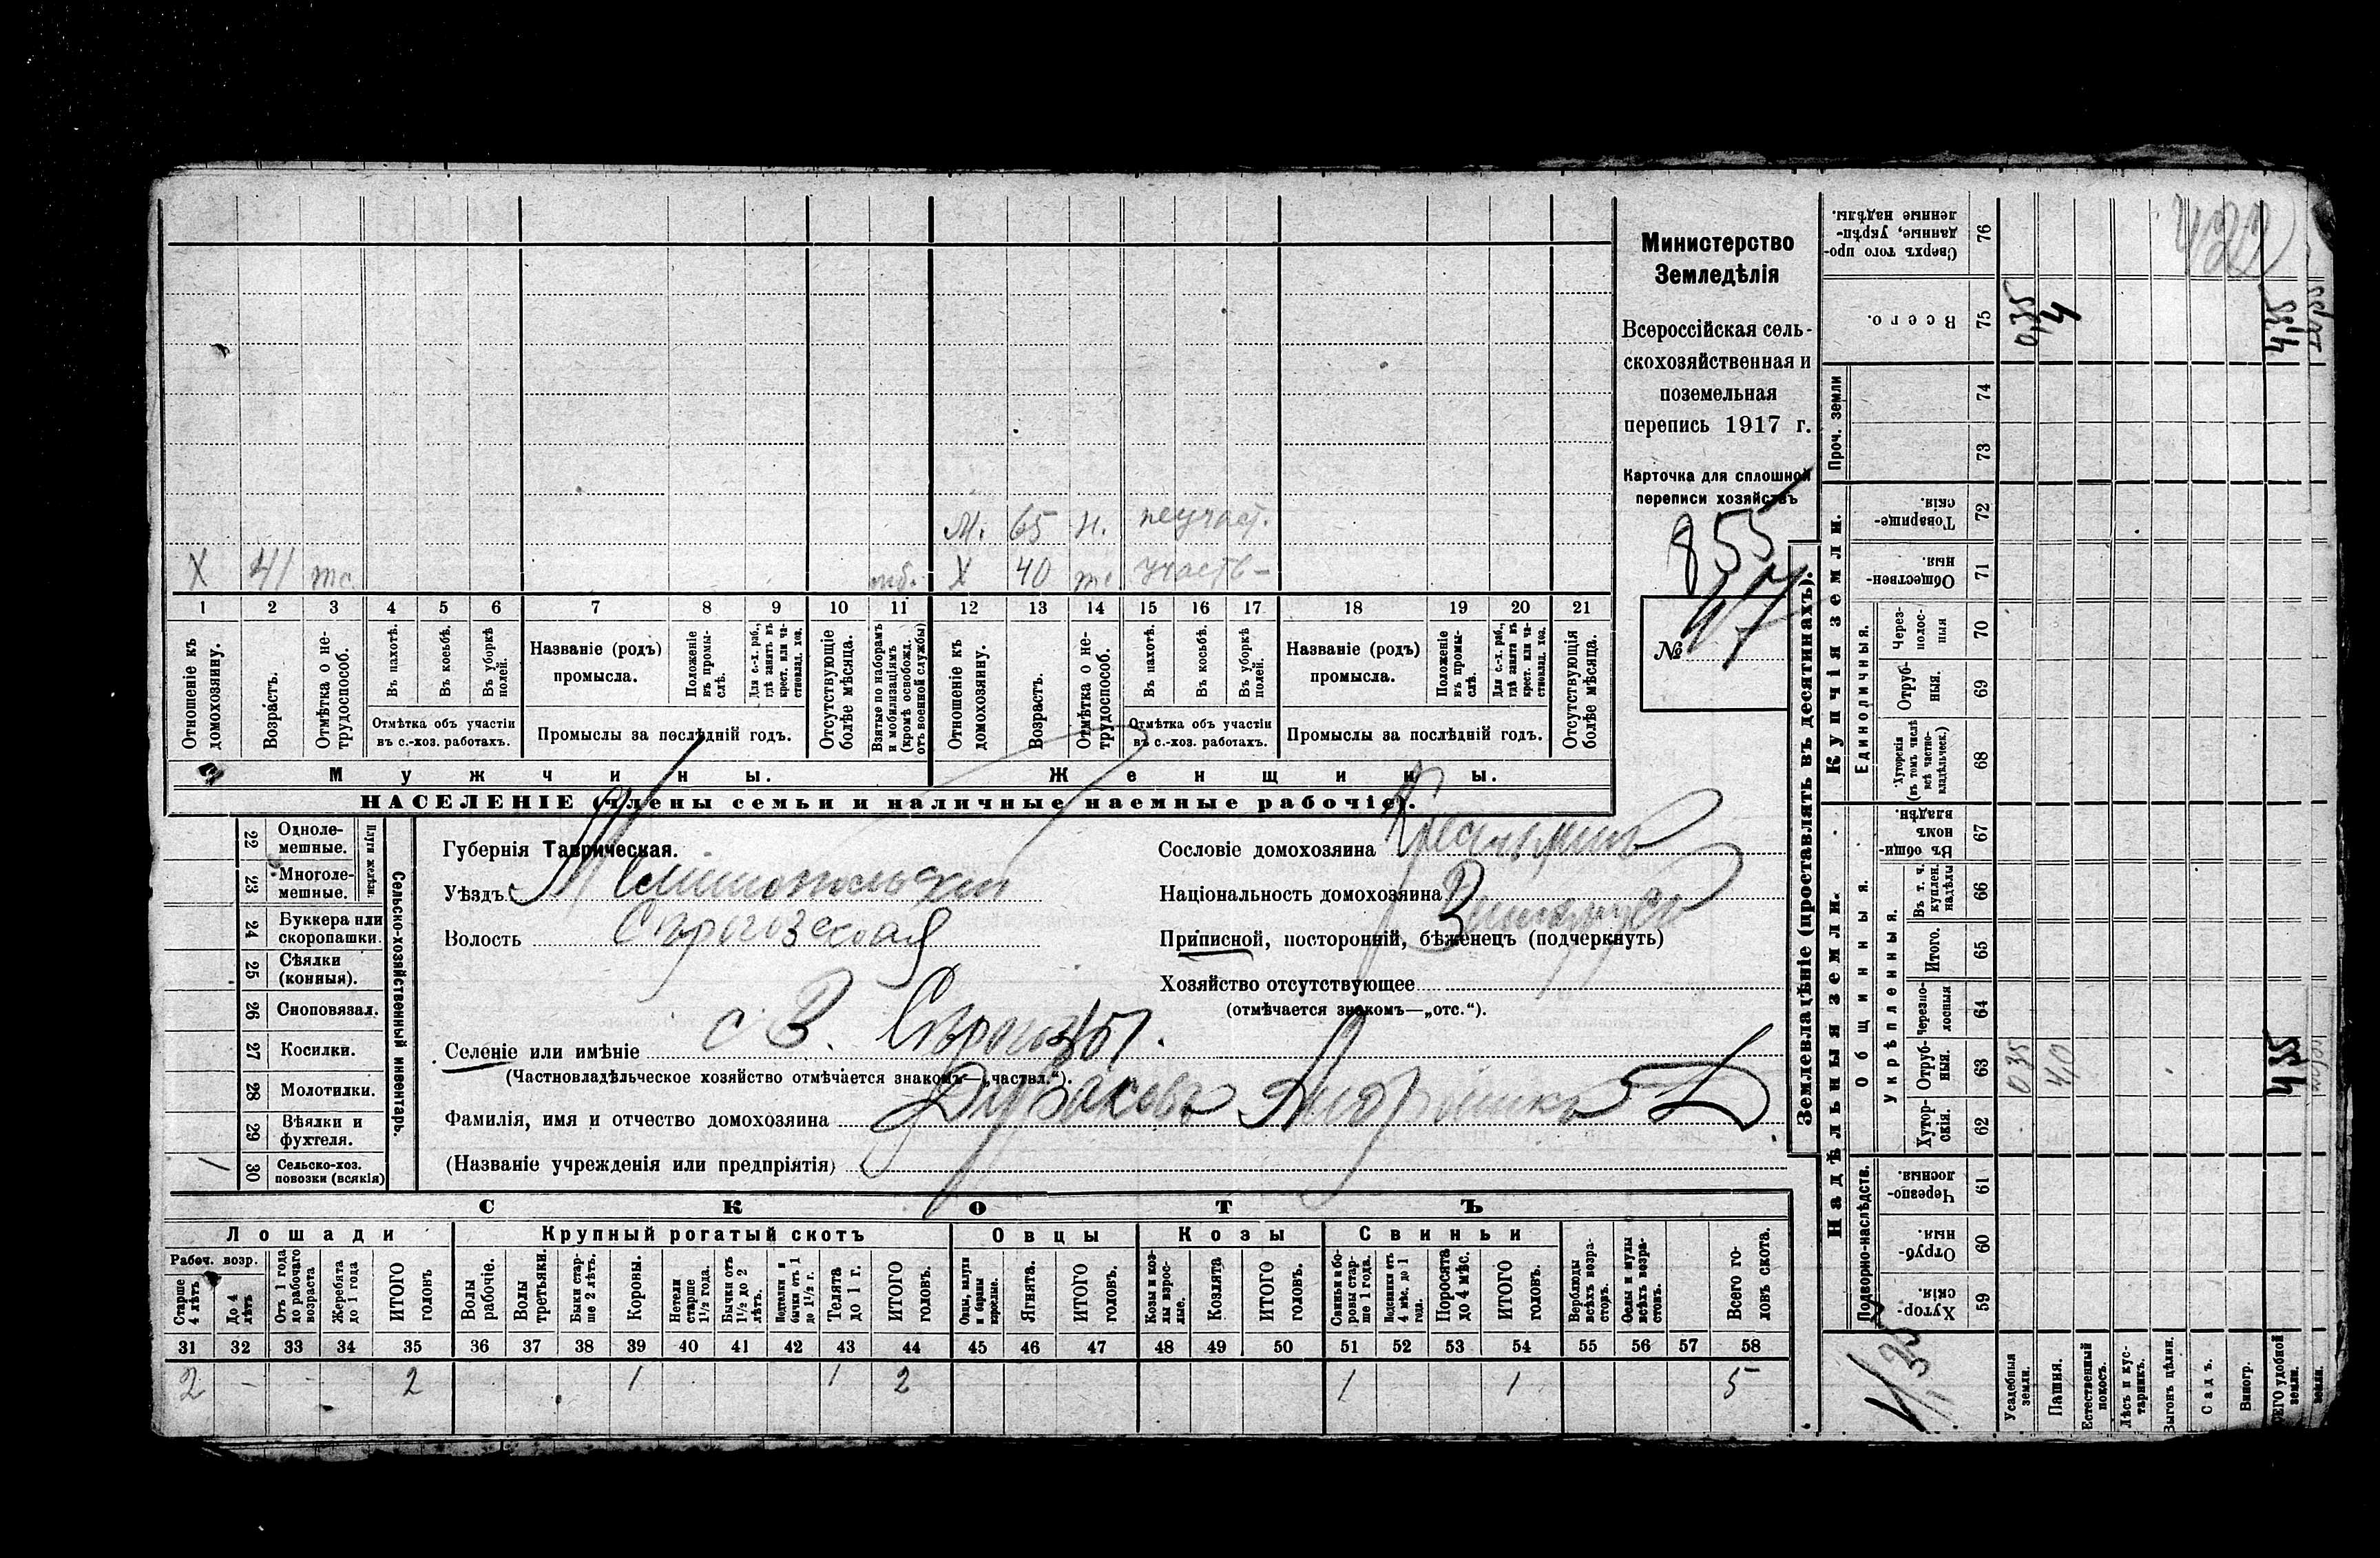 М. 65 н. неучаст.
Х 41 тс. моб. Х 40 тс участв-
1 2 3 4 5 6 7 8 9 10 11 12 13 14 15 16 17 18 19 20 21
Отношеніе къ домохозяину.
Возрастъ.
Отмѣтка о не-
трудоспособ.
Въ пахотѣ.
Въ косьбѣ.
Въ уборкѣ
полей.
Отмѣтка объ участіи
въ с.-хоз. работахъ.
Названіе (родъ)
промысла.
Положеніе
въ промы-
слѣ.
Для с.-х. раб.,
гдѣ занятъ въ
крест. или ча-
стновлад. хоз.
Промыслы за послѣдній годъ.
Отсутствующіе
болѣе мѣсяца.
Взятые по наборамъ
и мобилизаціямъ
(кромѣ освобожд.
отъ военной службы)
Отношеніе къ
домохозяину.
Возрастъ.
Отмѣтка о не-
трудоспособ.
Въ пахотѣ.
Въ косьбѣ.
Въ уборкѣ
полей.
Отмѣтка объ участіи
въ с.-хоз. работахъ.
Названіе (родъ)
промысла.
Положеніе
въ промы-
слѣ.
Для с.-х. раб.,
гдѣ занята въ
крест. или ча-
стновлад. хоз.
Промыслы за послѣдній годъ.
Отсутствующія
болѣе мѣсяца.
Мужчины.
Женщины.
НАСЕЛЕНІЕ (члены семьи и наличные наемные рабочіе).
Министерство
Земледѣлія
Всероссійская сель-
скохозяйственная и
поземельная
перепись 1917 г.
Карточка для сплошной
переписи хозяйствъ
855
№ 17
22 Одноле-
мешные.
23 Многоле-
мешные.
Плуги желѣзн.
24 Буккера или
скоропашки.
25 Сѣялки
(конныя).
26 Сноповязал.
27 Косилки.
28 Молотилки.
29 Вѣялки и
фухтеля.
1 30 Сельско-хоз.
повозки (всякія)
Сельско-хозяйственный инвентарь.
Губернія Таврическая.
Уѣздъ Мелитопольскій
Волость Сѣрогозская
Селеніе или имѣніе с В. Сѣрогозы.
(Частновладѣльческое хозяйство отмѣчается знакомъ—„частвл.“).
Фамилія, имя и отчество домохозяина
(Названіе учрежденія или предпріятія)
Сословіе домохозяина Крестьянинъ
Національность домохозяина
Приписной, посторонній, бѣженецъ (подчеркнуть)
Хозяйство отсутствующее
(отмѣчается знакомъ—„отс.“).
СКОТЪ
Лошади
Крупный рогатый скотъ
Овцы
Козы
Свиньи
Рабоч. возр.
Старше
4 лѣтъ
До 4
лѣтъ
Отъ 1 года
до рабочаго
возраста
Жеребята
до 1 года
ИТОГО
головъ
Волы
рабочіе.
Волы
третьяки.
Быки стар-
ше 2 лѣтъ.
Коровы.
Нетели
старше
1½ года.
Бычки отъ
1½ до 2
лѣтъ.
Подтелки и
бычки отъ 1
до 1½ г.
Телята
до 1 г.
ИТОГО
головъ.
Овцы, валухи
и бараны
взрослые.
Ягнята.
ИТОГО
головъ.
Козы и коз-
лы взрос-
лые.
Козлята
ИТОГО
головъ.
Свиньи и бо-
ровы стар-
ше 1 года.
Подсвинки отъ
4 мѣс. до 1
года.
Поросята
до 4 мѣс.
ИТОГО
головъ.
Верблюды
всѣхъ возра-
стовъ.
Ослы и мулы
всѣхъ возра-
стовъ.
Всего го-
ловъ скота.
31 32 33 34 35 36 37 38 39 40 41 42 43 44 45 46 47 48 49 50 51 52 53 54 55 56 57 58
2 - - - 2 1 1 2 1 1 5
Землевладѣніе (проставлять въ десятинахъ).
Надѣльныя земли.
Купчія земли.
Проч. земли
Подворно-наслѣдств.
Общинныя.
Укрѣпленныя.
Единоличныя.
Хутор-
скія. 59
Отруб-
ныя. 60
Черезпо-
лосныя 61
Хутор-
скія. 62
Отруб-
ныя. 63
Черезпо-
лосныя 64
Итого. 65
Въ т. ч.
куплен.
надѣлы 66
Въ общин-
номъ
владѣн. 67
Хуторскія
(въ томъ числѣ
всѣ частно-
владѣльческ.) 68
Отруб-
ныя. 69
Через-
полос-
ныя 70
Обществен-
ныя. 71
Товарище-
скія. 72
73
74
Всего. 75
Сверхъ того про-
данные, укрѣп-
ленные надѣлы. 76
Усадебныя
земли. 035 035
Пашня. 4,0 4
Естественный
покосъ.
Лѣсъ и кус-
тарникъ.
Выгонъ цѣлин.
Садъ.
Виногр.
ВСЕГО удобной
земли. 435 435
земли.
4,35